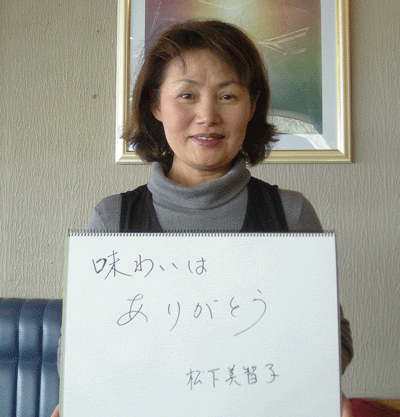 味わいは
ありがとう
松下美智子